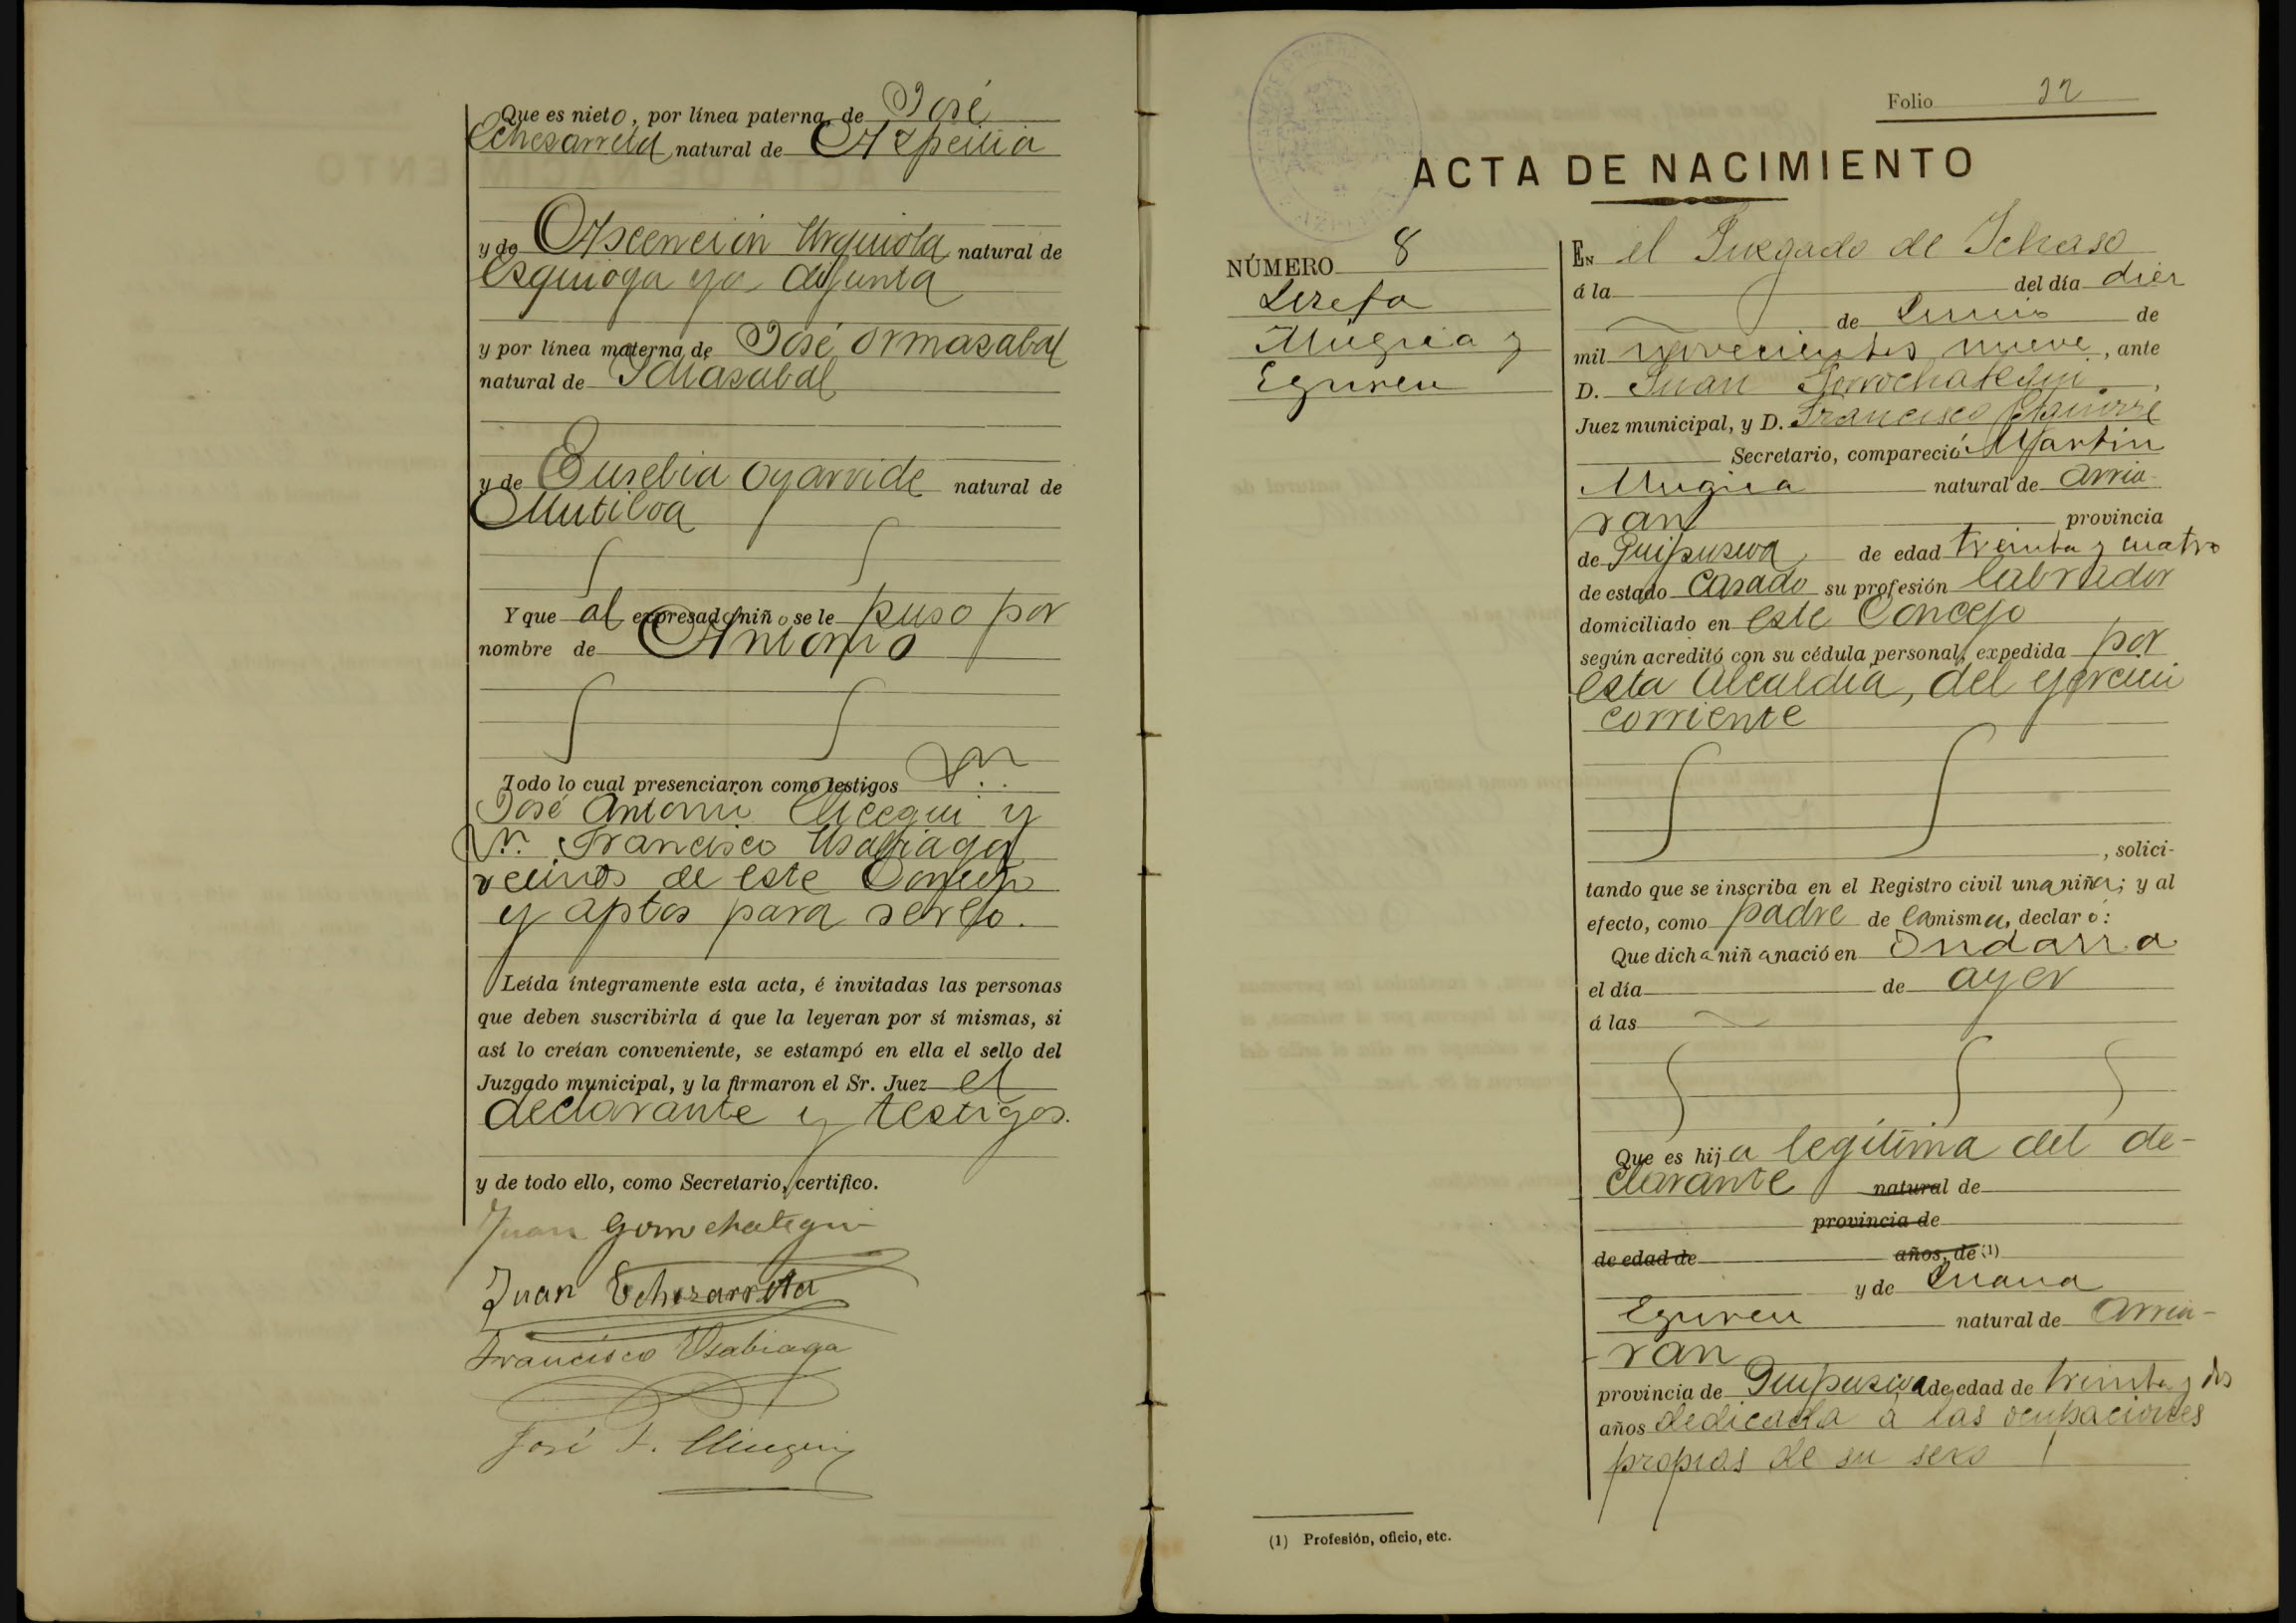 Que es nieto, por línea paterna, de José
Echezarreta, natural de Azpeitia
y de Ascención Urquiola natural de
Esquioga ya difunta
y por línea materna de José Ormazabal
natural de Ichasabal
y de Eusebia Oyarvide natural de
Mutiloa
Y que al expresado niño se le puso por
nombre de Antonio
Todo lo cual presenciaron como testigos Dn.
José Antonio y
Dn. Francisco Usabiaga
vecinos de este Concejo
y aptos para serlo.
Leída íntegramente esta acta, é invitadas las personas
que deben suscribirla á que la leyeran por sí mismas, si
así lo creían conveniente, se estampó en ella el sello del
Juzgado municipal, y la firmaron el Sr. Juez el
declarante y testigos.
y de todo ello, como Secretario, certifico.
Juan Gorrochategui
Juan Echezarreta
Francisco Usabiaga
José
Folio 12
ACTA DE NACIMIENTO
NÚMERO 8
Josefa
Mugica y
Eguren
En el Juzgado de Ichaso
á la del día diez
de Junio de
mil novecientos nueve, ante
D. Juan Gorrochategui,
Juez municipal, y D. Francisco Aguirre
Secretario, compareció Martin
Mugica natural de Arria-
ran provincia
de Guipuzcoa de edad treinta y cuatro
de estado casado su profesión labrador
domiciliado en este Concejo
según acreditó con su cédula personal, expedida por
esta Alcaldía, del ejercicio
corriente
, solici-
tando que se inscriba en el Registro civil una niña; y al
efecto, como padre de la misma, declaró:
Que dicha niña nació en Ondarra
el día de ayer
á las
Que es hija legítima del de-
clarante natural de
provincia de
de edad de años, de (1)
y de Juana
Eguren natural de Arria-
ran
provincia de Guipuzcoa de edad de treinta y dos
años dedicada á las ocupaciones
propias de su sexo
(1) Profesión, oficio, etc.